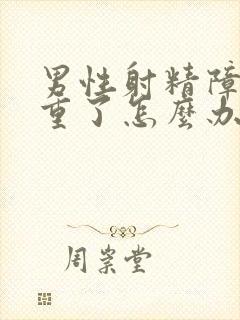 男性射精障
重了怎麼办
周崇堂